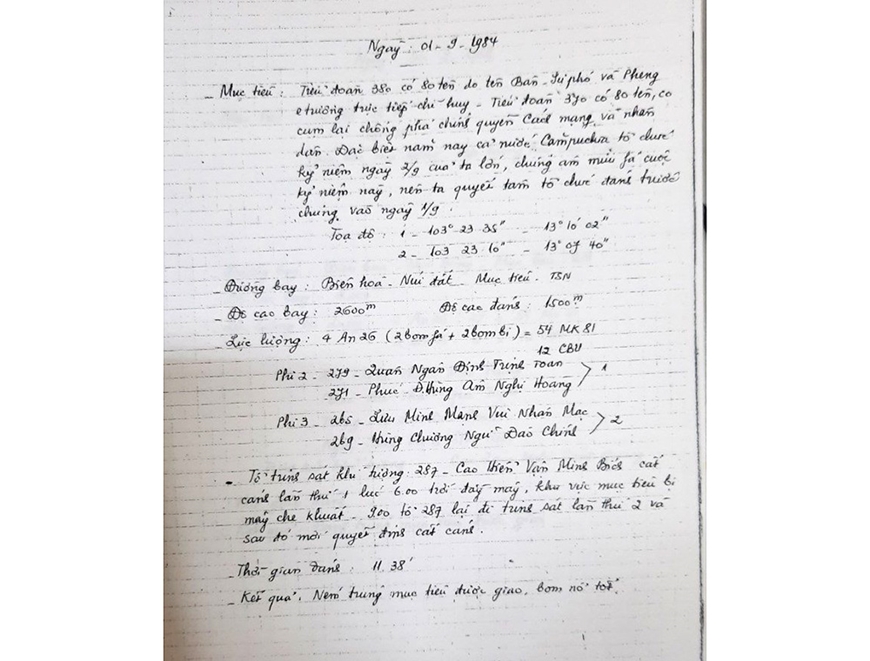 Ngày : 01 - 9 - 1984
- Mục tiêu : Tiểu đoàn 380 có 80 tên do tên Ban - Sư phó và Pheng
e trưởng trực tiếp chỉ huy - Tiểu đoàn 370 có 80 tên, co
cụm lại chống phá chính quyền Cách mạng và nhân
dân. Đặc biệt năm nay cả nước Cămpuchia tổ chức
kỷ niệm ngày 2/9 của ta lớn, chúng âm mưu phá cuộc
kỷ niệm này, nên ta quyết tâm tổ chức đánh trước
chúng vào ngày 1/9.
Toạ độ : 1 - 103° 23 35" - 13° 10' 02"
2 - 103 23 10" - 13° 07 40"
- Đường bay : Biên hoà - Núi đất - Mục tiêu - TSN
- Độ cao bay : 2600m Độ cao đánh : 1500m
- Lực lượng : 4 An 26 (2 bom fá + 2 bom bi) = 54 MK 81
12 CBU
Phi 2 - 279 - Quán Ngạn Định Trinh Toàn
271 - Phúc Đ.Hùng Am Nghị Hoàng > 1
Phi 3 - 265 - Lưu Minh Mạnh Vui Nhân Mạc
269 - Hùng Chương Ngữ Đào Chính > 2
- Tổ trinh sát khí tượng : 287 - Cao Thiện Vạn Minh Bích cất
cánh lần thứ 1 lúc 6.00 trời đầy mây, khu vực mục tiêu bị
mây che khuất - 9.00 tổ 287 lại đi trinh sát lần thứ 2 và
sau đó mới quyết định cất cánh.
- Thời gian đánh : 11.38'
- Kết quả : Ném trúng mục tiêu được giao, bom nổ tốt.